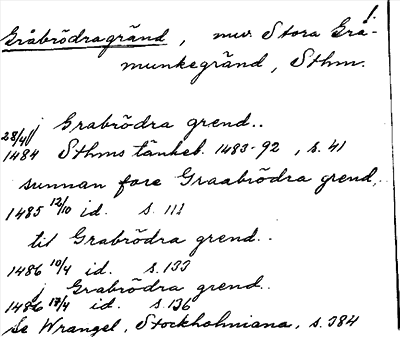 !
Gråbrödragränd, nuv. Stora Grå-
munkegränd, Sthm.
j Grabrödra grend..
28/4
1484 Sthms tänkeb. 1483-92, s. 41
sunnan fore Graabrödra grend,.
1485 12/10 id. s. 113
til Grabrödra grend..
1486 10/4 id. s. 133
j Grabrödra grend..
1486 17/4 id. s. 136
Se Wrangel, Stockholmiana, s. 384